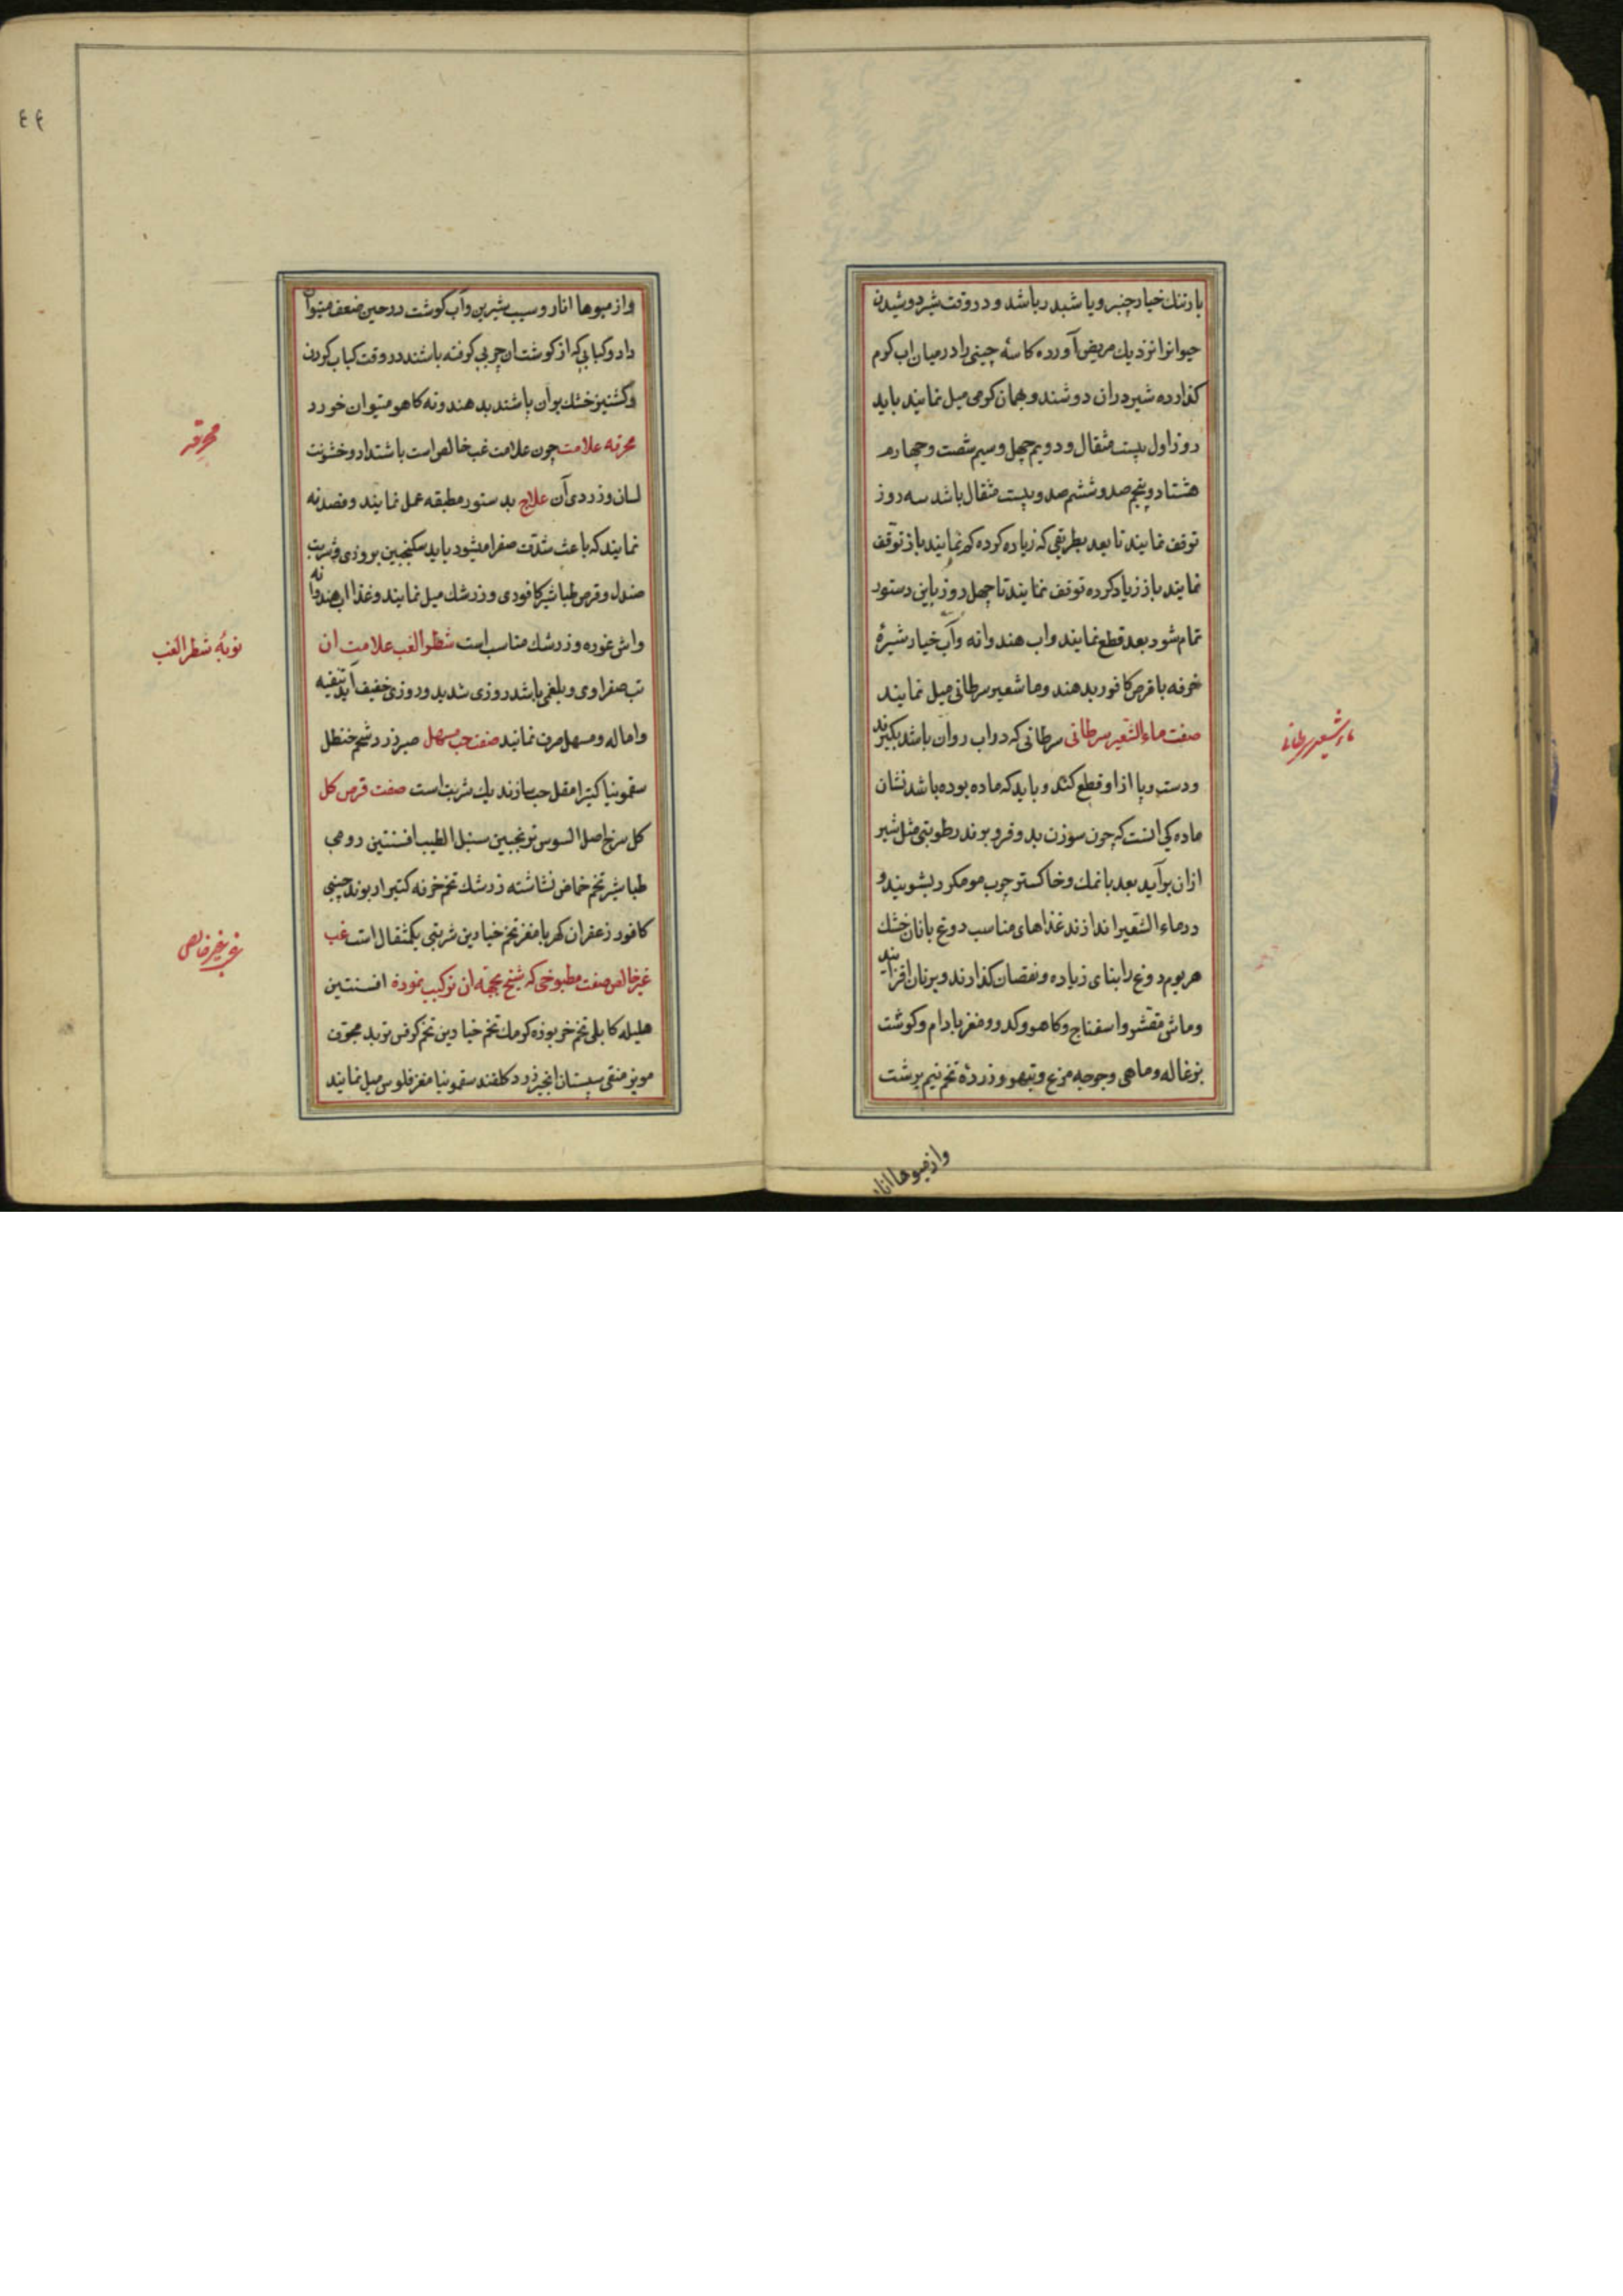 بارتنك خیار چنبر ویا شبدر باشد و در وقت شیر دوشیدن
حیوانرا نزدیك مریض آورده كاسهٔ چینی را در میان اب كرم
كذارده شیر دران دوشند و بهمان كرمی میل نمایند باید
روز اول بیست مثقال و دویم چهل و سیم شصت و چهارم
هشتاد و پنجم صد و ششم صد و بیست مثقال باشد سه روز
توقف نمایند تا بعد بطریقی كه زیاده كرده كم نمایند باز توقف
نمایند باز زیاد كرده توقف نمایند تا چهل روز باین دستور
تمام شود بعد قطع نمایند و اب هندوانه و آب خیار شیرهٔ
خرفه با قرص كافور بدهند و ماشعیر سرطانی میل نمایند
صفت ماء الشّعیر سرطانی سرطانی كه در اب روان باشد بكیرند
و دست و پا از او قطع كنند و باید كه ماده بوده باشد نشان
ماده كی انست كه چون سوزن بدو فرو برند رطوبتی مثل شیر
ازان برآید بعد با نمك و خاكستر چوب مو مكرر بشویند و
در ماء الشّعیر اندازند غذاهای مناسب دوغ با نان خشك
هر یوم دوغ را بنای زیاده و نقصان كذارند و بر نان افزایند
و ماش مقشر و اسفناج و كاهو و كدو و مغز بادام و كوشت
بزغاله و ماهی و جوجه مرغ و تیهو و زردهٔ تخم نیم برشت
ماء شعیر سرطانی
واز میوها انار
و از میوها انار و سیب شیرین و آب كوشت در حین ضعف میتوان
داد و كبابی كه از كوشت ان چربی كرفته باشند در وقت كباب كردن
و كشنیز خشك بر ان پاشند بدهند و ته كاهو میتوان خورد
محرقه علامت چون علامت غب خالص است باشتداد و خشونت
لسان و زردی آن علاج بدستور مطبقه عمل نمایند و فصد نه
نمایند كه باعث شدّت صفرا میشود باید سكنجبین بزوری و شربت
صندل و قرص طباشیر كافوری و زرشك میل نمایند و غذا اب هندوانه
و اش غوره و زرشك مناسب است شطر الغب علامت ان
تب صفراوی و بلغمی باشد روزی شدید و روزی خفیف آید تنقیه
و اماله و مسهل صرف نمایند صفت حب مسهل صبر زرد شحم حنظل
سقمونیا كتیرا مقل حب سازند یك شربت است صفت قرص كل
كل سرخ اصل السوس ترنجبین سنبل الطیب افسنتین رومی
طباشیر تخم خماض نشاشته زرشك تخم خرفه كتیرا ریوند چینی
كافور زعفران كهربا مغز تخم خیارین شربتی یكمثقال است غب
غیر خالص صفت مطبوخی كه شیخ بجهة ان تركیب نموده افسنتین
هلیله كابلی تخم خربوزه كرمك تخم خیارین تخم كرفس تربد مجوف
مویز منقی سپستان انجیر زرد كلقند سقمونیا مغز فلوس میل نمایند
محرقه
نوبهٔ شطر الغب
غب غیر خالص